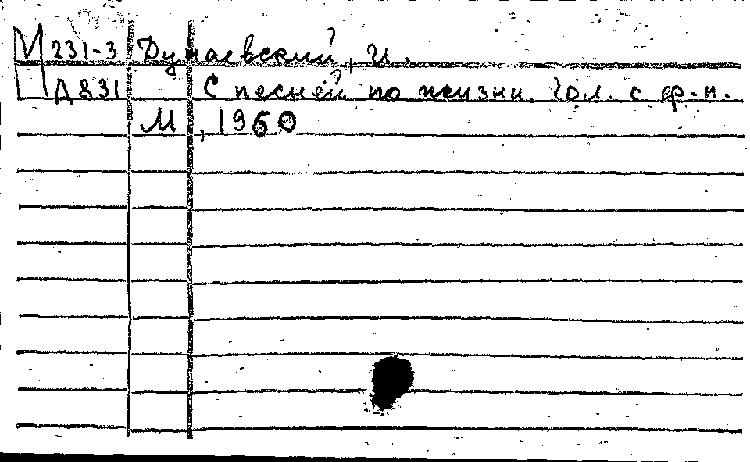 М 231-3 Дунаевский, И.
Д831 С песней по жизни. Гол. с ф-п.
М., 1960